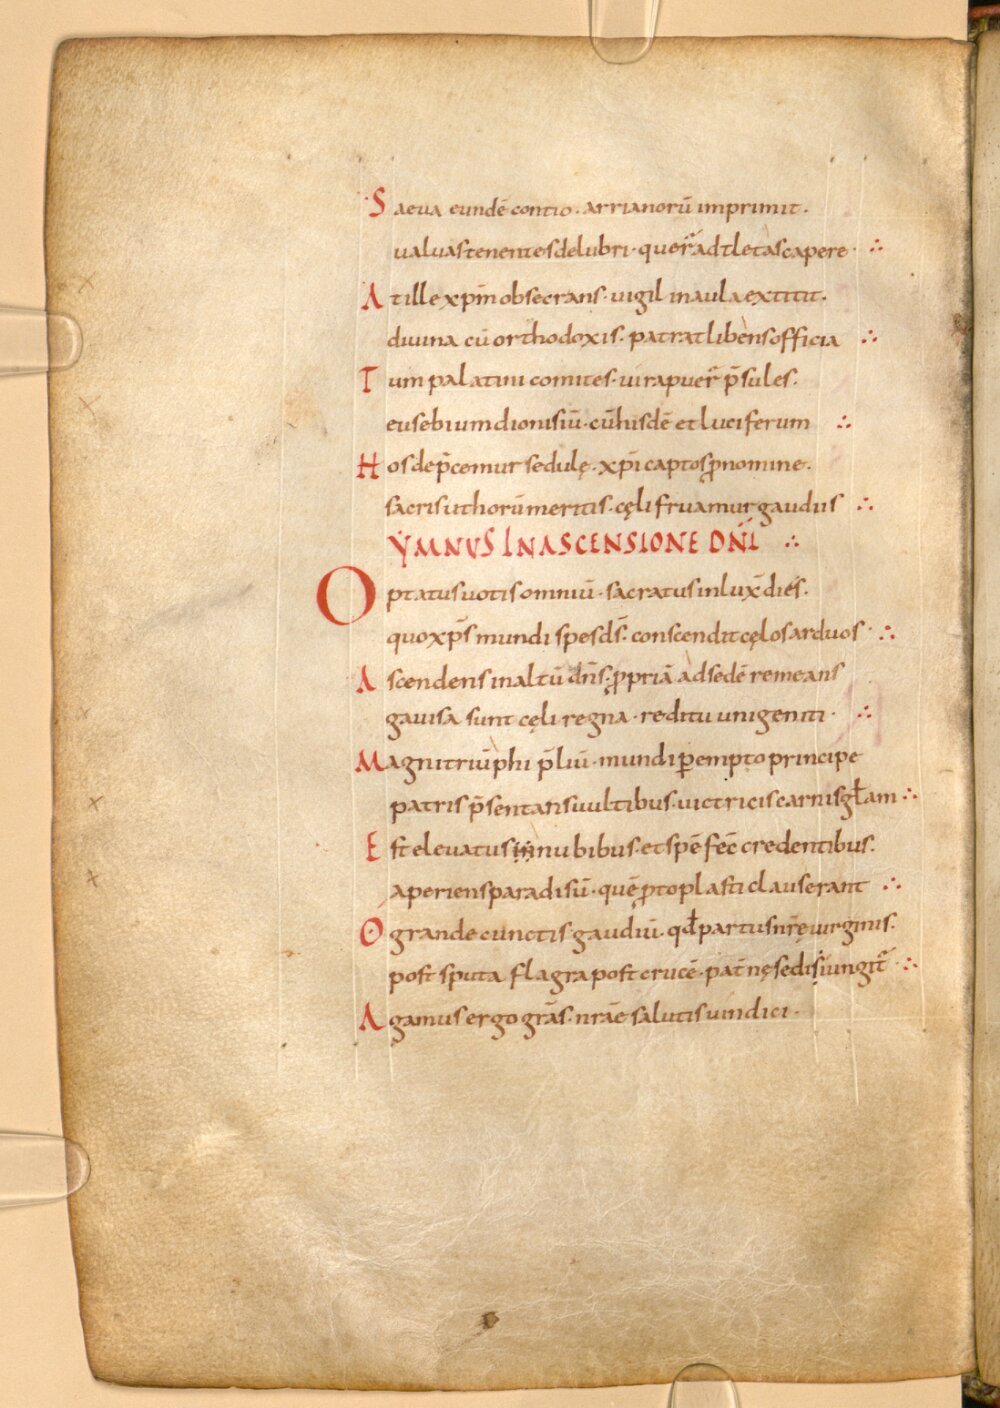 Saeua eundē contio · arrianorū imprimit ·
ualuas tenentes delubri · quer̄ adtletas capere · ∴
At ille xp̄m obsecrans · uigil in aula extitit ·
diuina cū orthodoxis · patrat libens officia ∴
Tum palatini comites · ui rapuer̄ p̄sules ·
eusebium dionisiū · cū hisdē et luciferum ∴
Hos dep̄cemur sedulę · xp̄i captos pro nomine ·
sacris ut horū meritis · cęli fruamur gaudiis ∴
YMNUS IN ASCENSIONE DN̄I ∴
Optatus uotis omniū · sacratus inlux̄ dies ·
quo xp̄s mundi spes ds̄ · conscendit cęlos arduos · ∴
Ascendens in altū dn̄s · propriā ad sedē remeans
gauisa sunt cęli regna · reditu unigeniti · ∴
Magni triūphi p̄liū · mundi perempto principe
patris p̄sentans uultibus · uictricis carnis gl̄am ∴
Est eleuatus in nubibus · et spē fec̄ credentibus ·
aperiens paradisū · quē protoplasti clauserant ∴
O grande cunctis gaudiū · qd̄ partus nr̄ę uirginis ·
post sputa flagra post crucē · pat̄nę sedi iungit̄ · ∴
Agamus ergo grās · nrāe salutis uindici ·